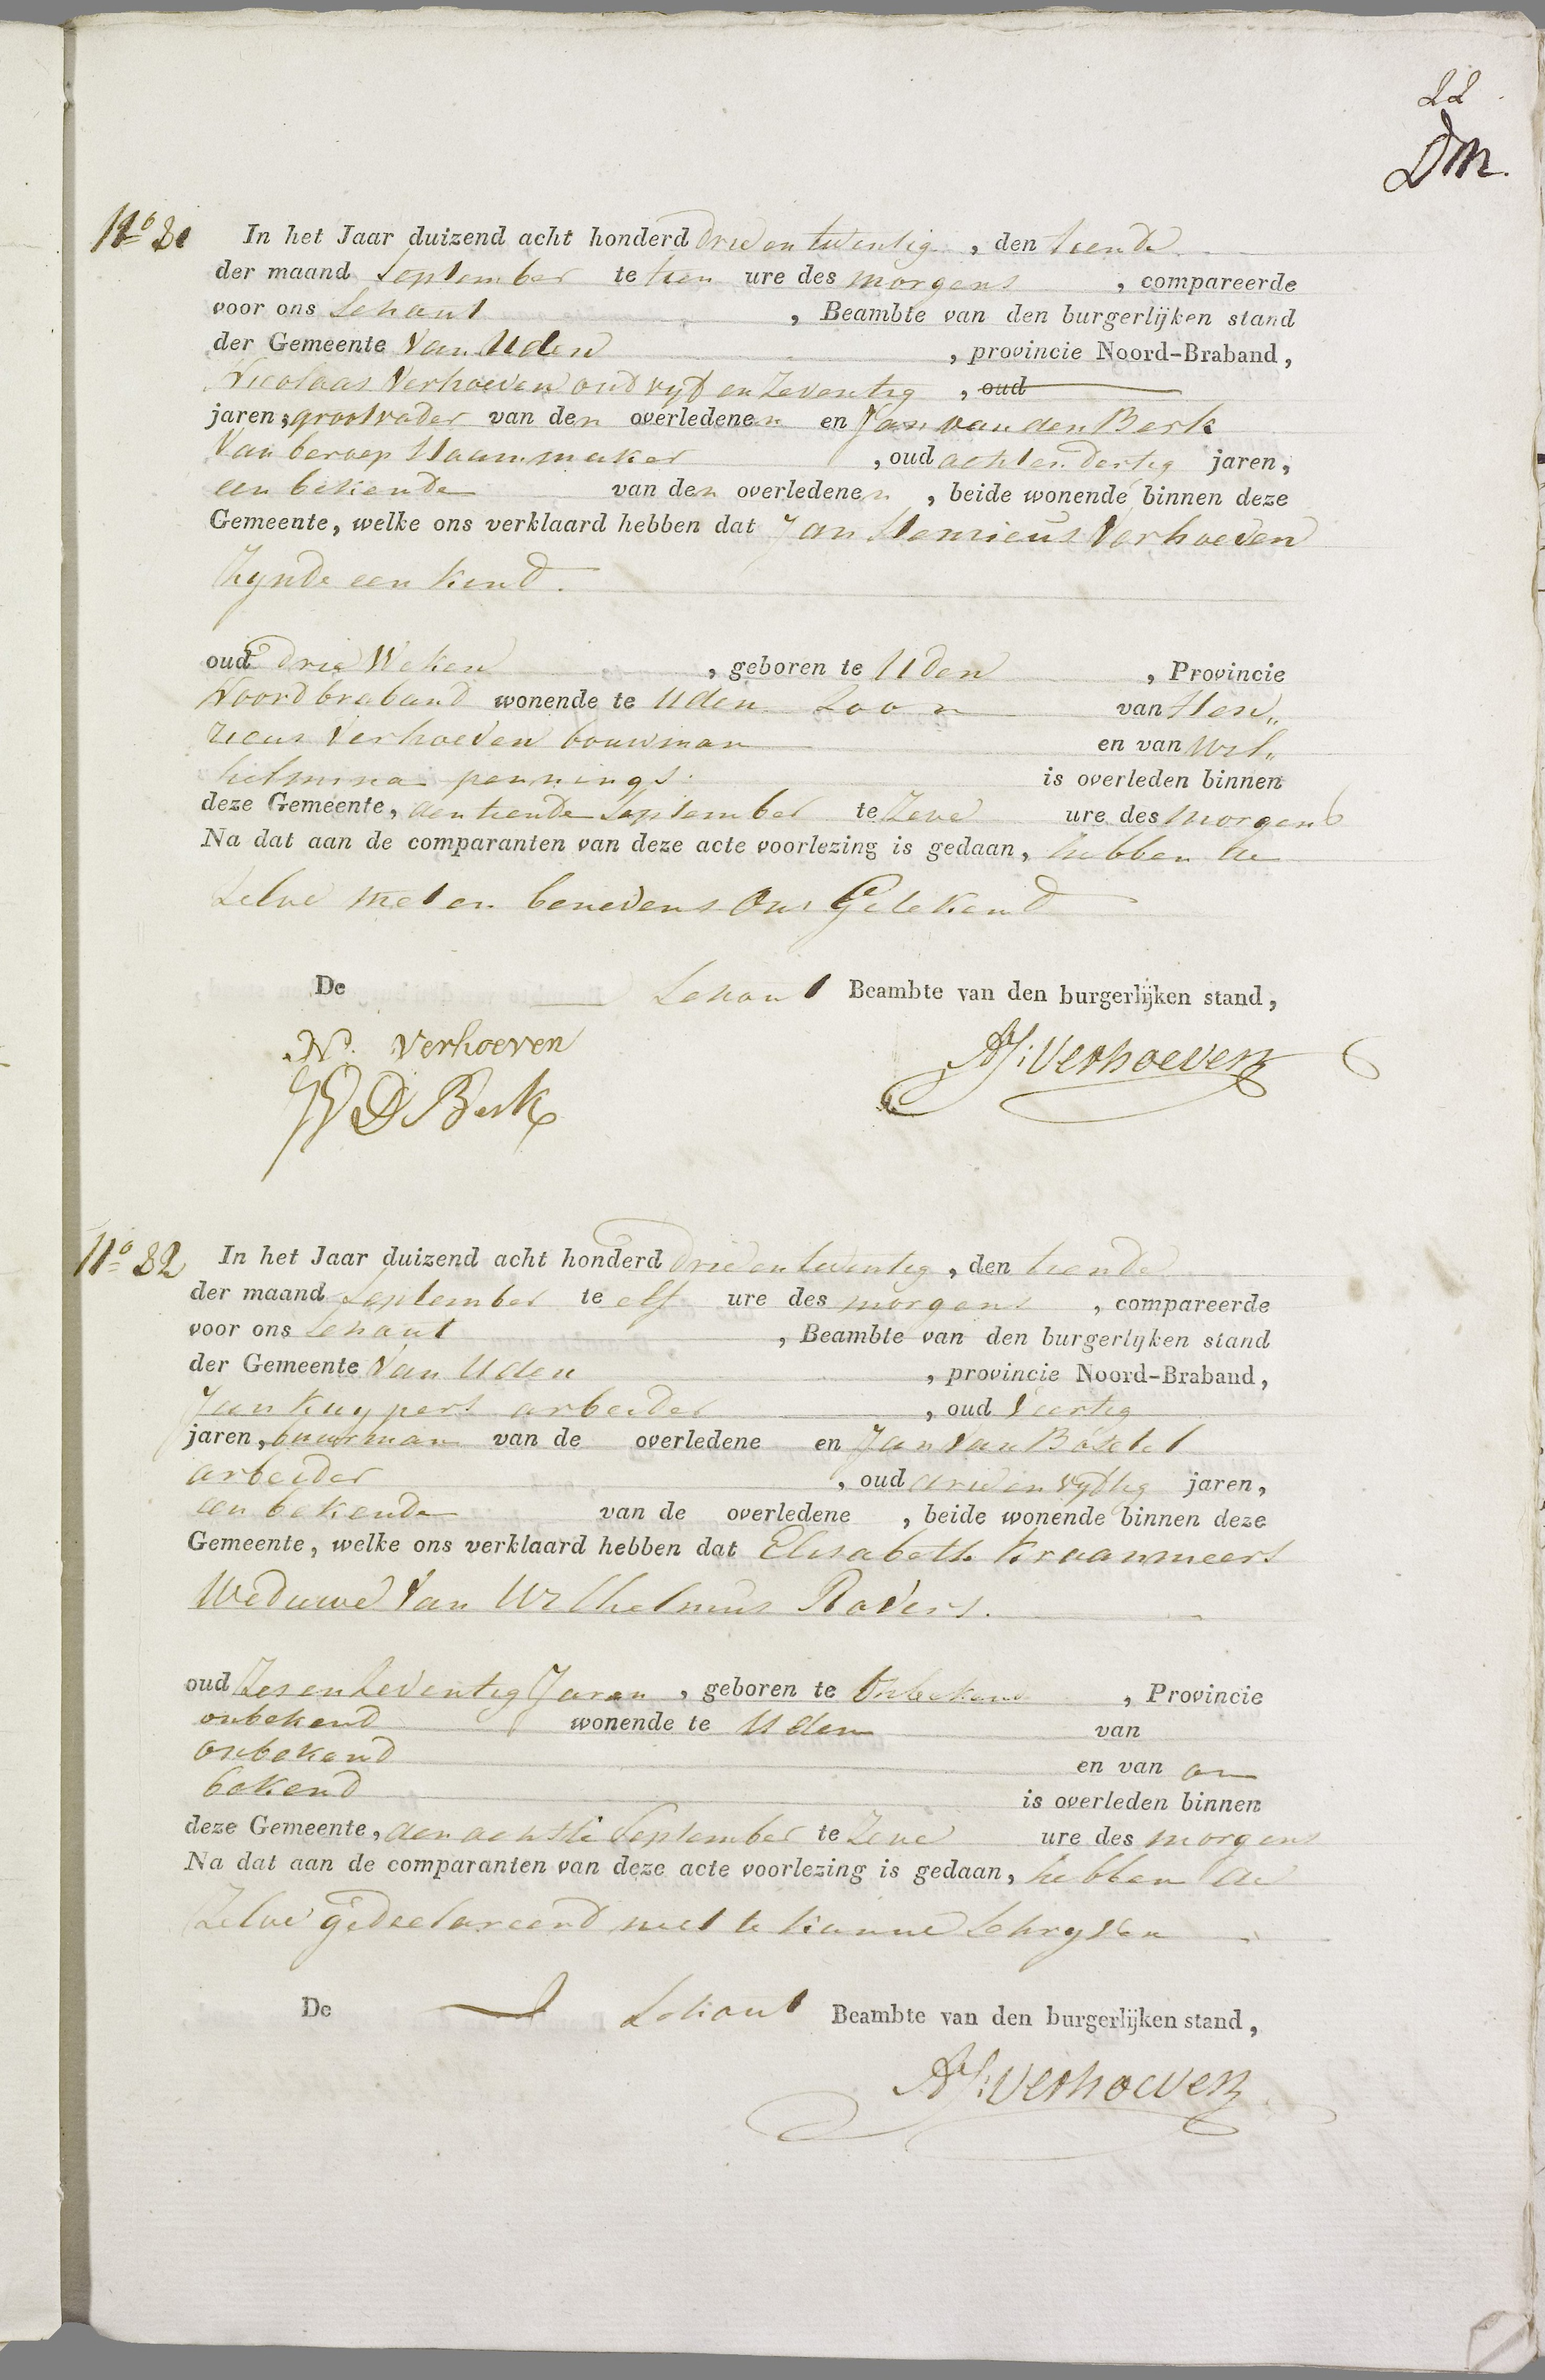 22
DM.
No 31 In het Jaar duizend acht honderd drie en twentig, den tiende
der maand September te tien ure des morgens, compareerde
voor ons Schout, Beambte van den burgerlijken stand
der Gemeente Van Uden, provincie Noord-Braband,
Nicolaas Verhoeven oud vyf en Zeventig, oud
jaren, grootvader van den overledenen en Jan van den Berk
Van beroep Haammaker, oud acht en dertig jaren,
een bekende van den overledenen, beide wonende binnen deze
Gemeente, welke ons verklaard hebben dat Jan Henricus Verhoeven
Zynde een kind.
oud drie Weken, geboren te Uden, Provincie
Noordbraband wonende te Uden Zoon van Hen„
ricus Verhoeven bouwman en van Wil„
helmina pennings. is overleden binnen
deze Gemeente, den tiende September te Zeve ure des morgens
Na dat aan de comparanten van deze acte voorlezing is gedaan, hebben de
Zelve met en benevens Ons Getekend
De Schout Beambte van den burgerlijken stand,
N. Verhoeven
AJ: Verhoeven
JVD Berk
No 32 In het Jaar duizend acht honderd drie en twentig, den tiende
der maand September te elf ure des morgens, compareerde
voor ons Schout, Beambte van den burgerlyken stand
der Gemeente Van Uden, provincie Noord-Braband,
Jan Kuypers arbeider, oud Viertig
jaren, buurman van de overledene en Jan Van Boxtel
arbeider, oud drie en vyftig jaren,
een bekende van de overledene, beide wonende binnen deze
Gemeente, welke ons verklaard hebben dat Elisabeth Kraanmeers
Weduwe Van Wilhelmus Rovers.
oud Zes en Zeventig Jaren, geboren te Onbekend, Provincie
onbekend wonende te Uden van
onbekend en van on
bekend is overleden binnen
deze Gemeente, den achtste September te Zeve ure des morgens
Na dat aan de comparanten van deze acte voorlezing is gedaan, hebben de
Zelve gedeclareerd niet te kunne Schryven
De Schout Beambte van den burgerlijken stand,
AJ: Verhoeven